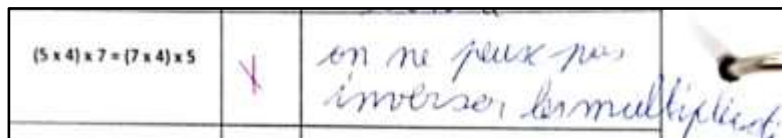 (5 x 4) x 7 = (7 x 4) x 5
X
on ne peux pas
inverser les multiplicat